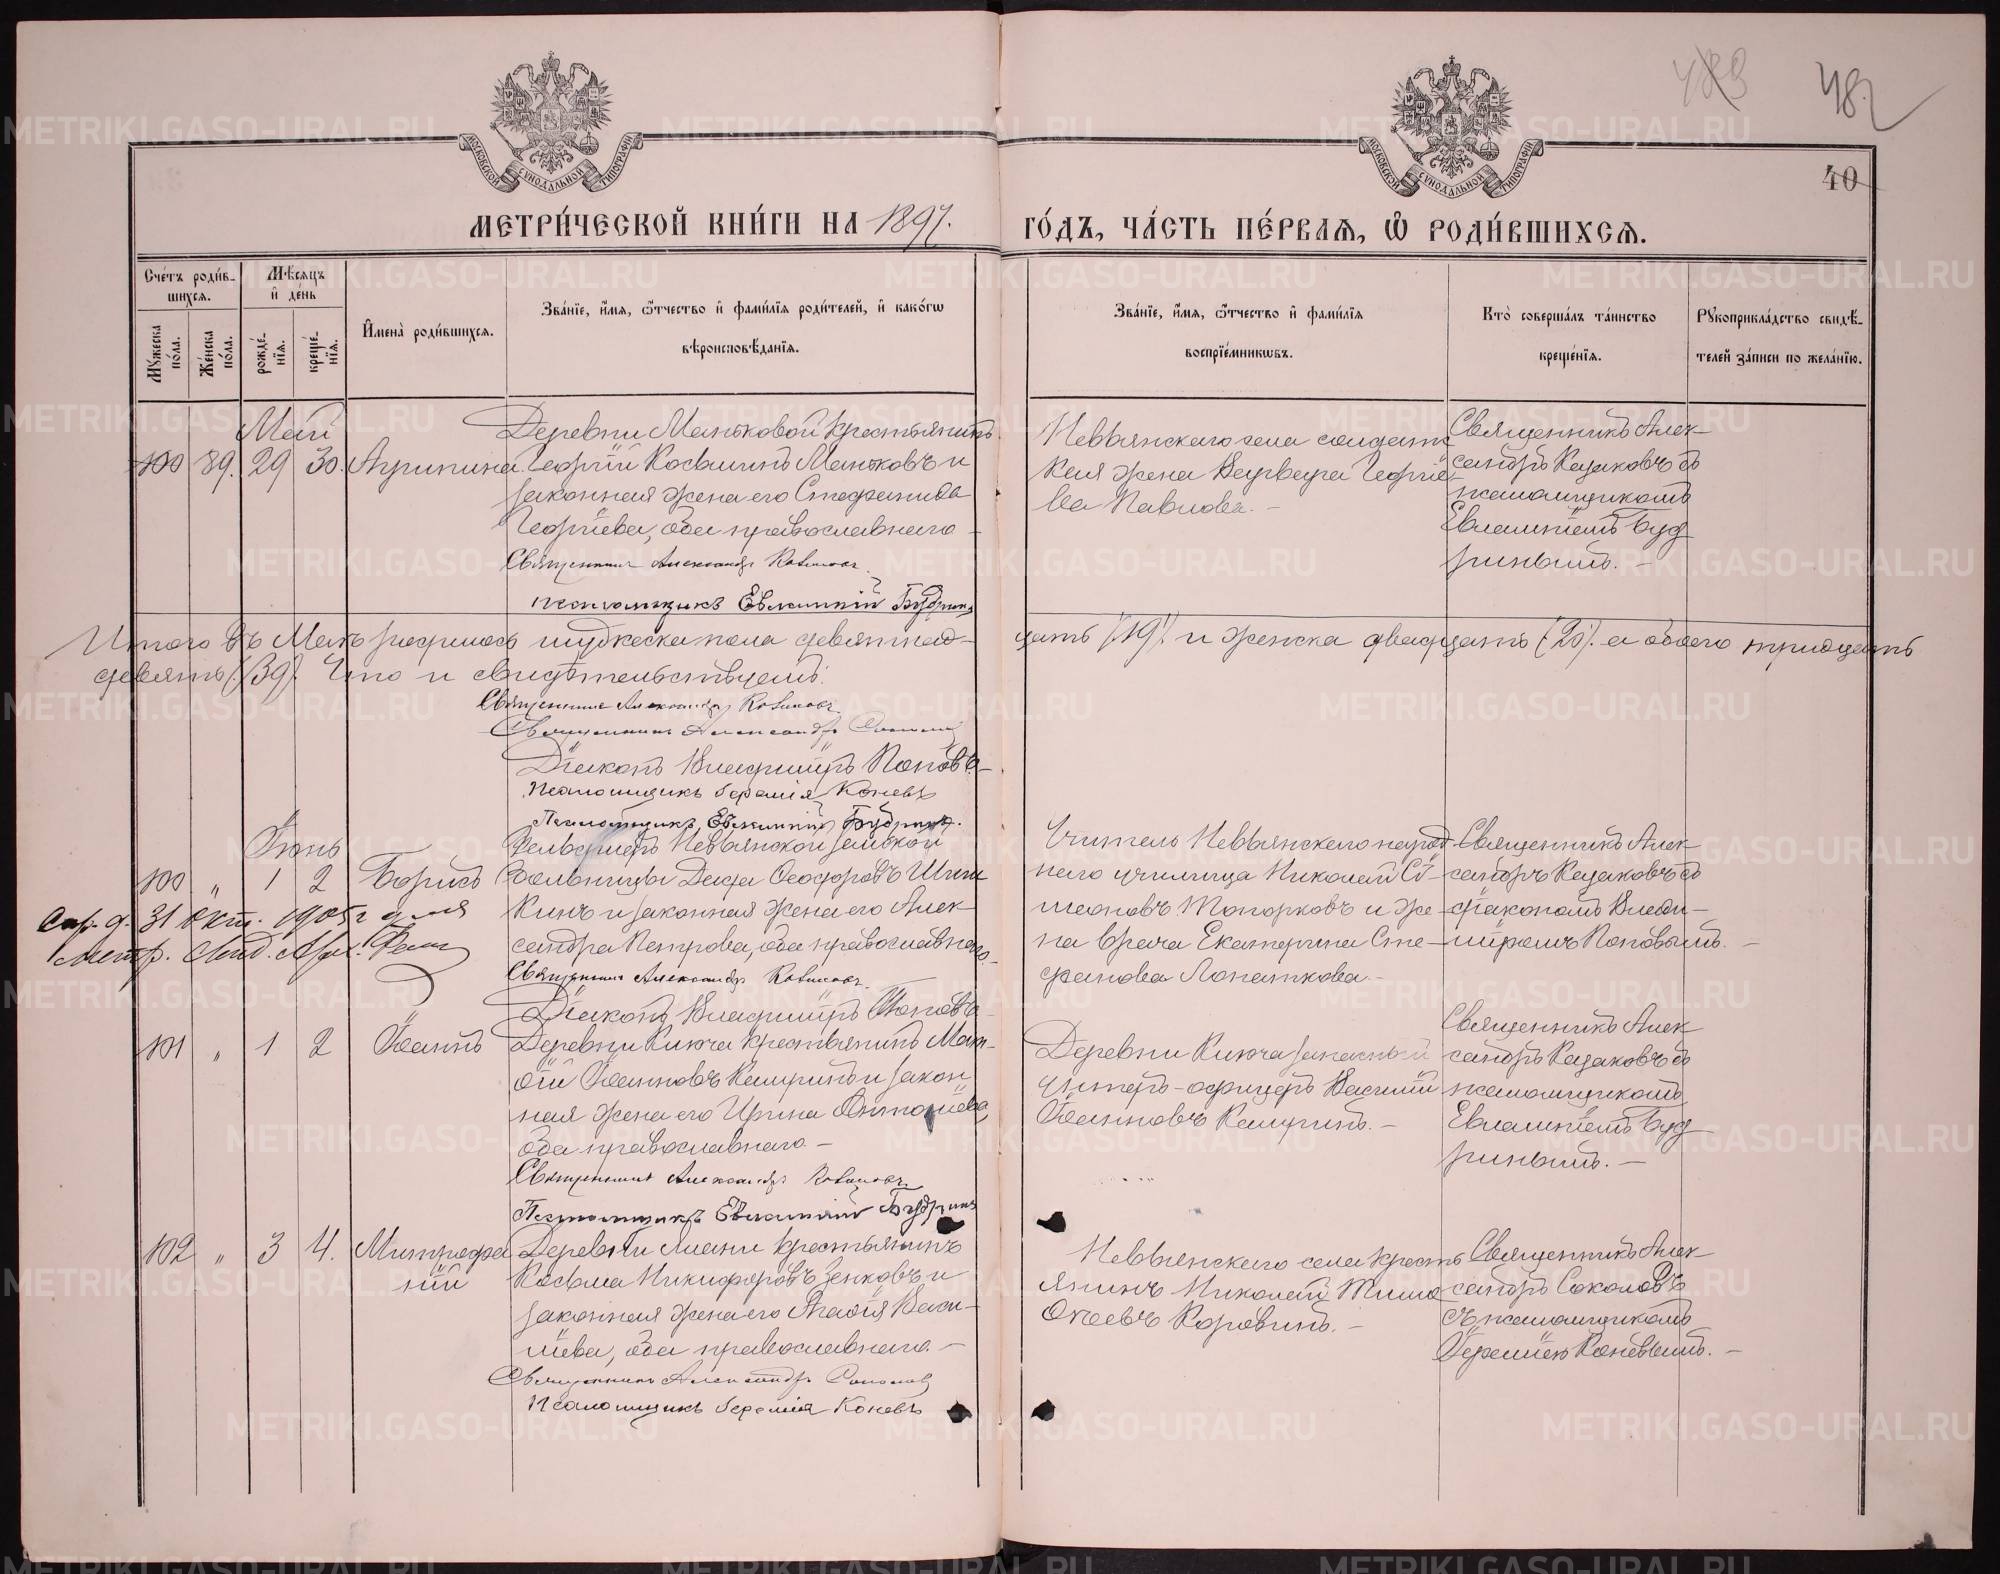 483
48
40
МЕТРИ́ЧЕСКОЙ КНИ́ГИ НА 1897. ГО́ДЪ, ЧА́СТЬ ПЕ́РВАЯ, Ѡ҆ РОДИ́ВШИХСЯ.
МОСКОВСКОЙ СѴНОДАЛЬНОЙ ТИПОГРАФІИ
МОСКОВСКОЙ СѴНОДАЛЬНОЙ ТИПОГРАФІИ
Сче́тъ роди́вшихся.
Мꙋ́жеска по́ла.
Же́нска по́ла.
Мѣ́сяцъ и҆ де́нь
рожде́нїя.
креще́нїя.
И҆мена̀ роди́вшихся.
Зва́нїе, и҆́мя, ѻ҆́тчество и҆ фами́лїя роди́телей, и҆ како́гѡ
вѣроисповѣ́данїя.
Зва́нїе, и҆́мя, ѻ҆́тчество и҆ фами́лїя
воспрїе́мникѡвъ.
Кто̀ соверша́лъ та́инство
креще́нїя.
Рꙋкоприкла́дство свидѣ́-
телей за́писи по жела́нїю.
Май
89. 29 30. Агрипина
Деревни Маньковой крестьянинъ
Георгій Косьминъ Маньковъ и
законная жена его Стефанида
Георгіева, оба православнаго
Священникъ Александръ Казаковъ.
псаломщикъ Евлампій Будринъ
Невьянскаго села солдат
кая жена Варвара Георгіе-
ва Павлова. –
Священникъ Алек-
сандръ Казаковъ съ
псаломщикомъ
Евлампіемъ Буд
ринымъ. –
Итого въ Маѣ родилось мужеска пола девятнад-
цать (19) и женска двадцать (20). а обоего тридцать
девять (39). Что и свидѣтельствуемъ.
Священникъ Александръ Казаковъ.
Священникъ Александръ Соколовъ
Діаконъ Владиміръ Поповъ
Псаломщикъ Іеремія Коневъ
Псаломщикъ Евлампій Будринъ.
Іюнь
100 „ 1 2 Борисъ
Фельдшеръ Невьянской земской
больницы Давидъ Ѳеодоровъ Шиш
кинъ и законная жена его Алек
сандра Петрова, оба православнаго.
Священникъ Александръ Казаковъ.
Діаконъ Владиміръ Поповъ
Учитель Невьянскаго народ
наго училища Николай Сѵ-
меоновъ Топорковъ и же-
на врача Екатерина Сте-
фанова Лопаткова. –
Священникъ Алек-
сандръ Казаковъ съ
діакономъ Влади-
міромъ Поповымъ. –
31 Окт. 1905 г для
метр.
101 „ 1 2 Іоаннъ
Деревни Ключа крестьянинъ Мат-
ѳій Іоанновъ Кашринъ и закон
ная жена его Ирина Антоніева,
оба православнаго. –
Священникъ Александръ Казаковъ.
Псаломщикъ Евлампій Будринъ
Деревни Ключа запасный
Унтеръ-офицеръ Василій
Іоанновъ Кашринъ. –
Священникъ Алек
сандръ Казаковъ съ
псаломщикомъ
Евлампіемъ Буд
ринымъ. –
102 „ 3 4. Митрофа
ній
Деревни крестьянинъ
Косьма Никифоровъ Зенковъ и
законная жена его Агаѳія Васи-
ліева, оба православнаго. –
Священникъ Александръ Соколовъ
Псаломщикъ Іеремія Коневъ
Невьянскаго села кресть
янинъ Николай Тимо
ѳеевъ Коровинъ. –
Священникъ Алек
сандръ Соколовъ
съ псаломщикомъ
Іереміею Коневымъ. –